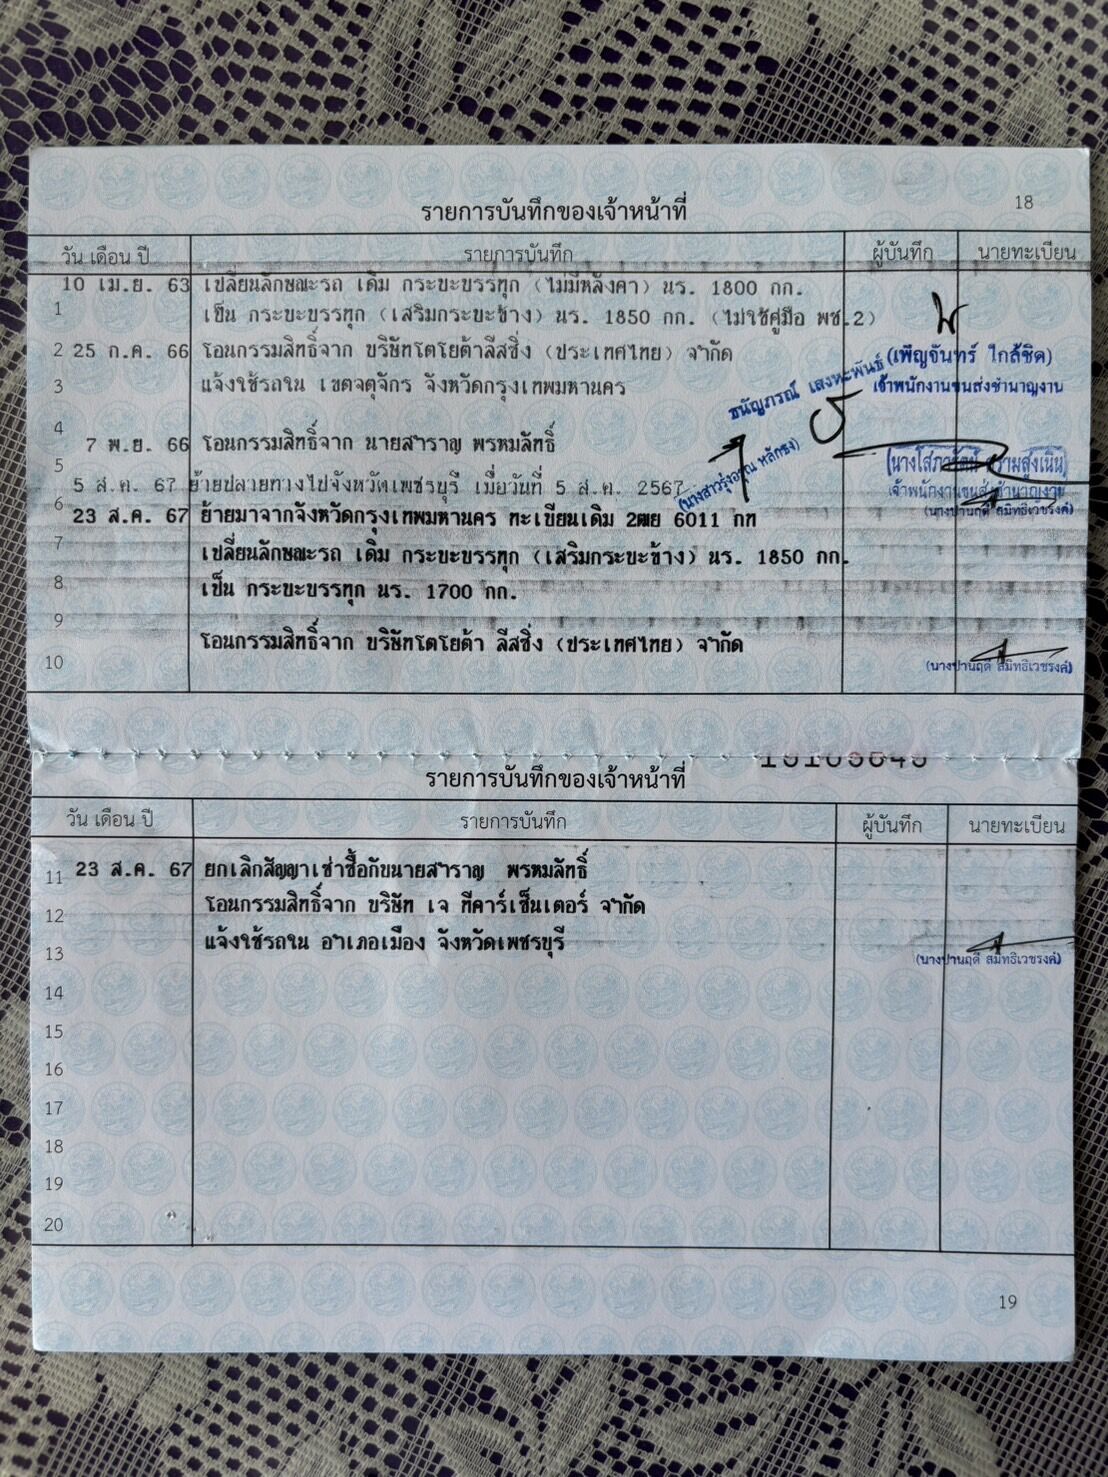 18
รายการบันทึกของเจ้าหน้าที่
วัน เดือน ปี รายการบันทึก ผู้บันทึก นายทะเบียน
10 เม.ย. 63 เปลี่ยนลักษณะรถ เดิม กระบะบรรทุก (ไม่มีหลังคา) นร. 1800 กก.
1 เป็น กระบะบรรทุก (เสริมกระบะข้าง) นร. 1850 กก. (ไม่ใช้คู่มือ พช.2)
2 25 ก.ค. 66 โอนกรรมสิทธิ์จาก บริษัทโตโยต้าลีสซิ่ง (ประเทศไทย) จำกัด (เพ็ญจันทร์ ใกล้ชิด)
3 แจ้งใช้รถใน เขตจตุจักร จังหวัดกรุงเทพมหานคร เจ้าพนักงานขนส่งชำนาญงาน
ธนัญภรณ์ เสงหะพันธ์
4
7 พ.ย. 66 โอนกรรมสิทธิ์จาก นายสำราญ พรหมลัทธิ์
5
5 ส.ค. 67 ย้ายปลายทางไปจังหวัดเพชรบุรี เมื่อวันที่ 5 ส.ค. 2567 เจ้าพนักงานขนส่งชำนาญงาน
6 (นางปานฤดี สมิทธิเวชรงค์)
23 ส.ค. 67 ย้ายมาจากจังหวัดกรุงเทพมหานคร ทะเบียนเดิม 2ฒย 6011 กท
7 เปลี่ยนลักษณะรถ เดิม กระบะบรรทุก (เสริมกระบะข้าง) นร. 1850 กก.
8 เป็น กระบะบรรทุก นร. 1700 กก.
9
โอนกรรมสิทธิ์จาก บริษัทโตโยต้า ลีสซิ่ง (ประเทศไทย) จำกัด
10 (นางปานฤดี สมิทธิเวชรงค์)
รายการบันทึกของเจ้าหน้าที่
วัน เดือน ปี รายการบันทึก ผู้บันทึก นายทะเบียน
11 23 ส.ค. 67 ยกเลิกสัญญาเช่าซื้อกับนายสำราญ พรหมลัทธิ์
12 โอนกรรมสิทธิ์จาก บริษัท เจ ทีคาร์เซ็นเตอร์ จำกัด
13 แจ้งใช้รถใน อำเภอเมือง จังหวัดเพชรบุรี (นางปานฤดี สมิทธิเวชรงค์)
14
15
16
17
18
19
20
19